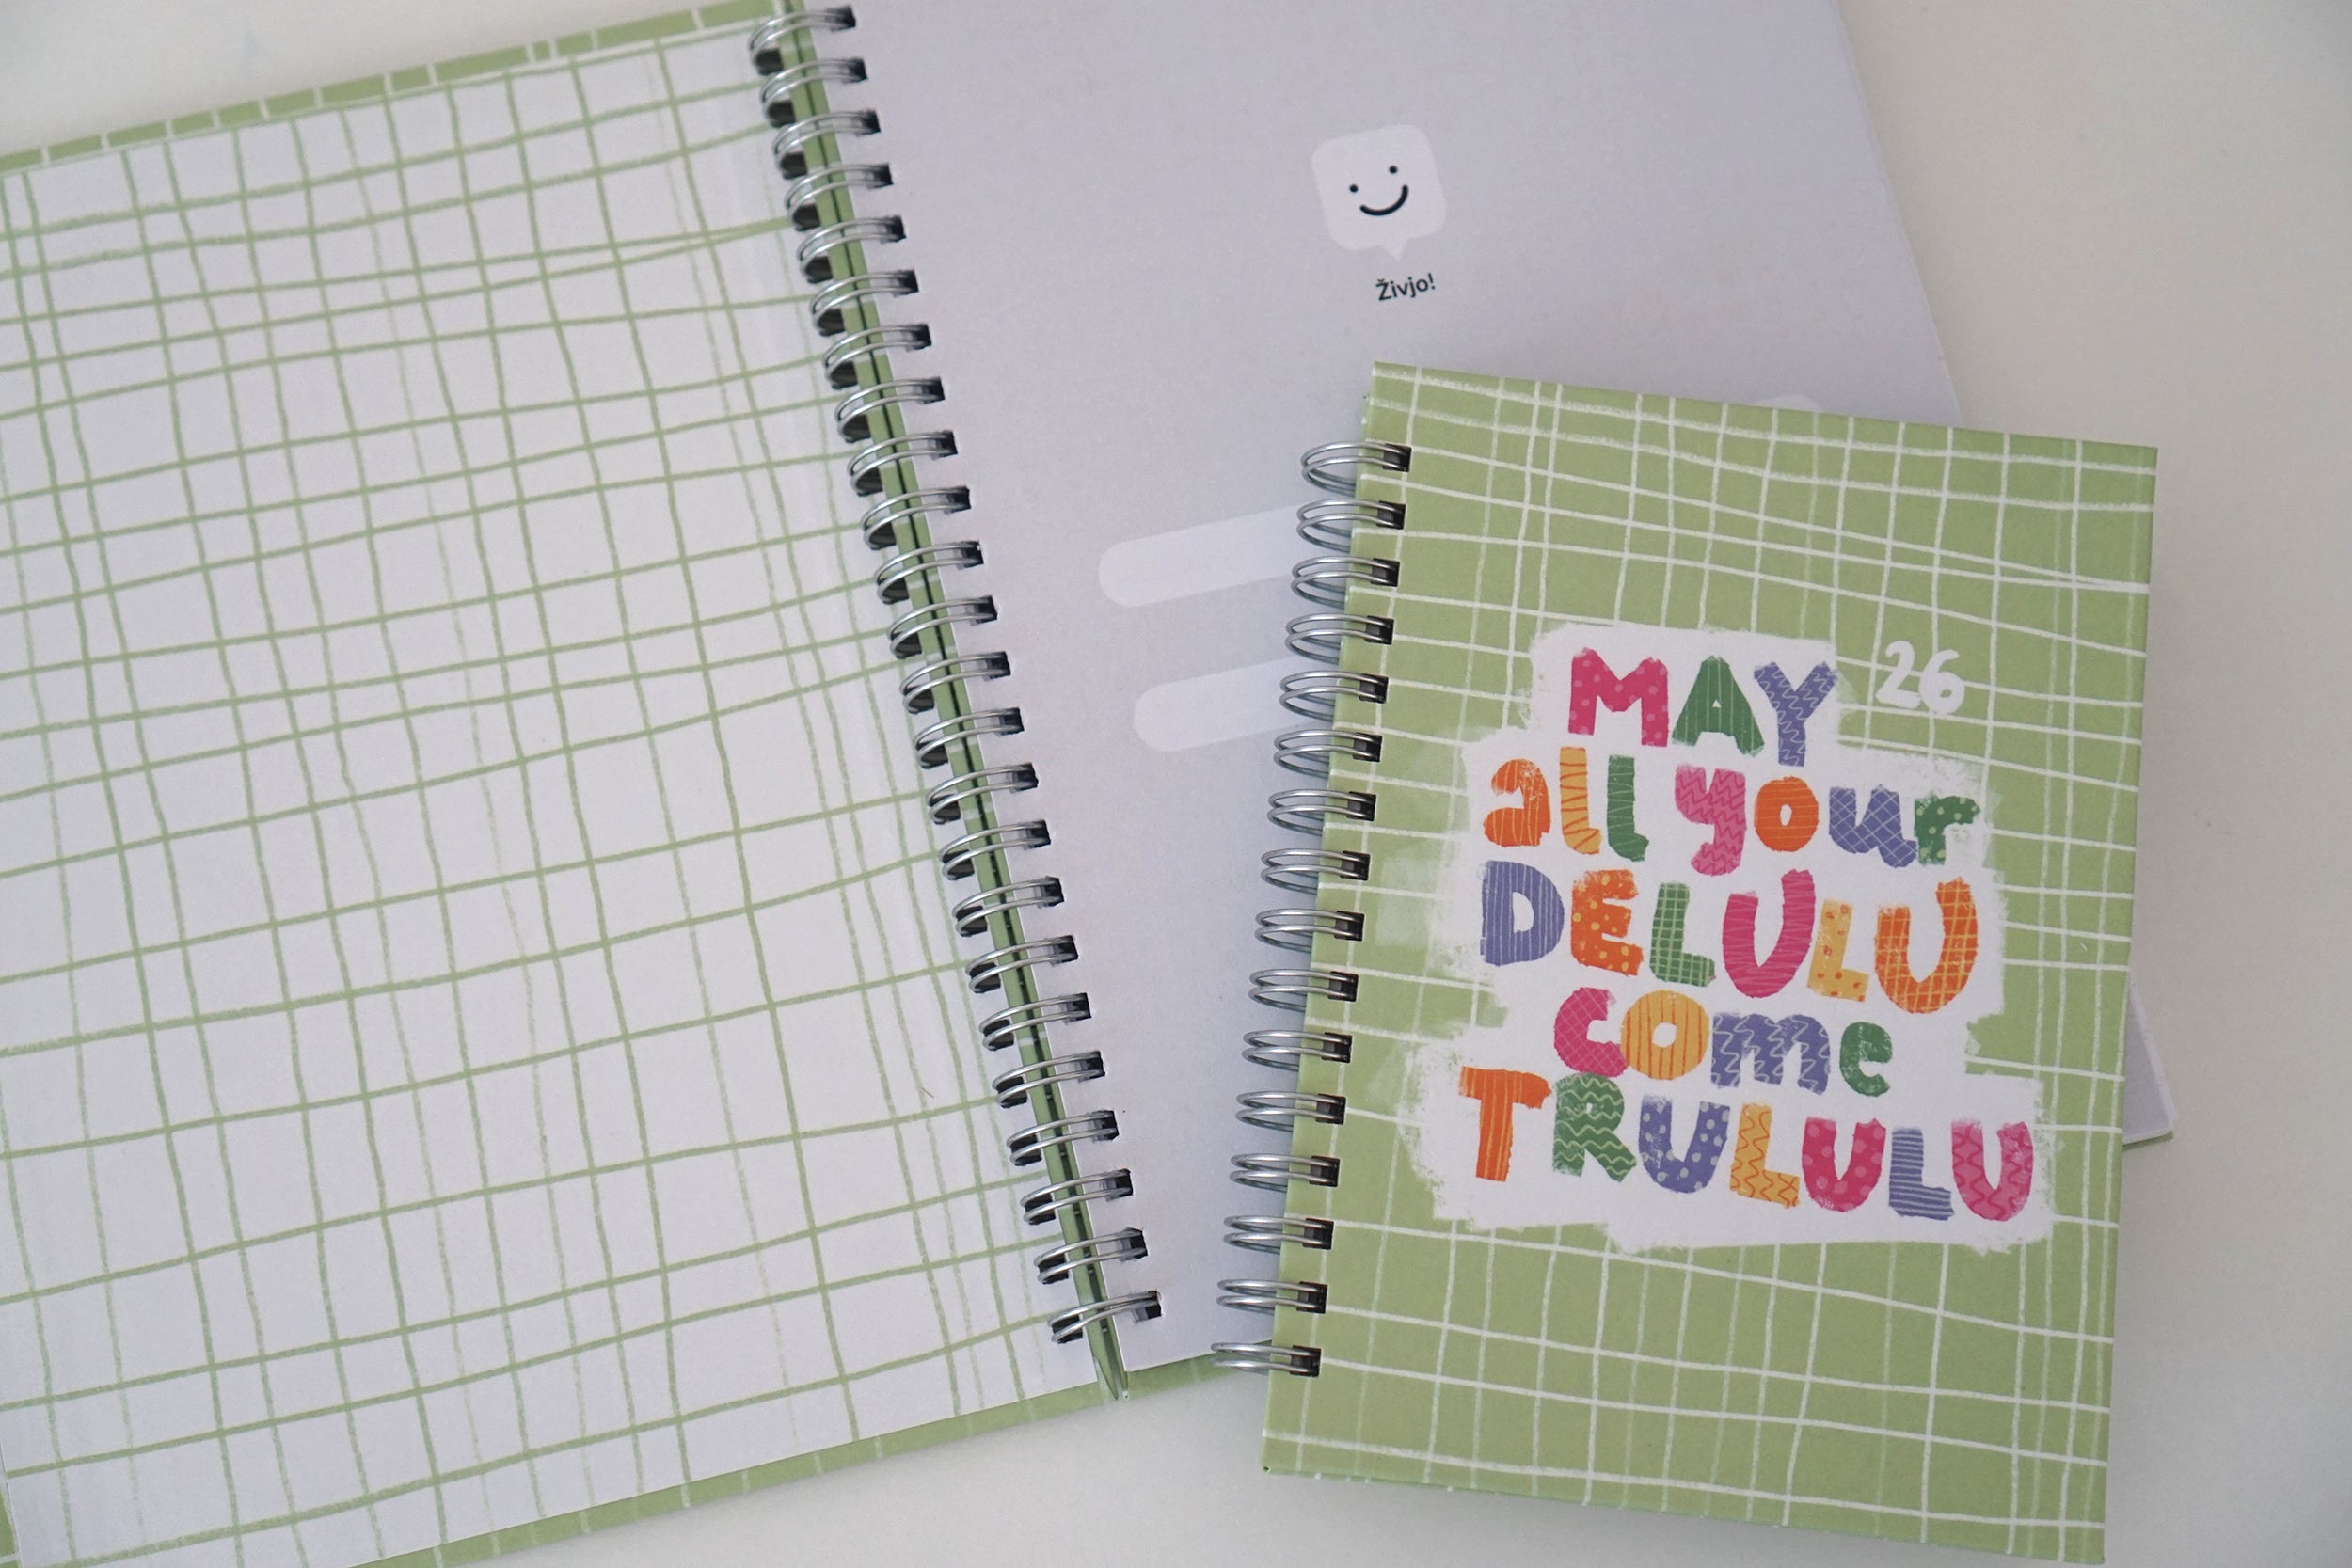 Živjo!
26
MAY
all your
DELULU
come
TRULULU